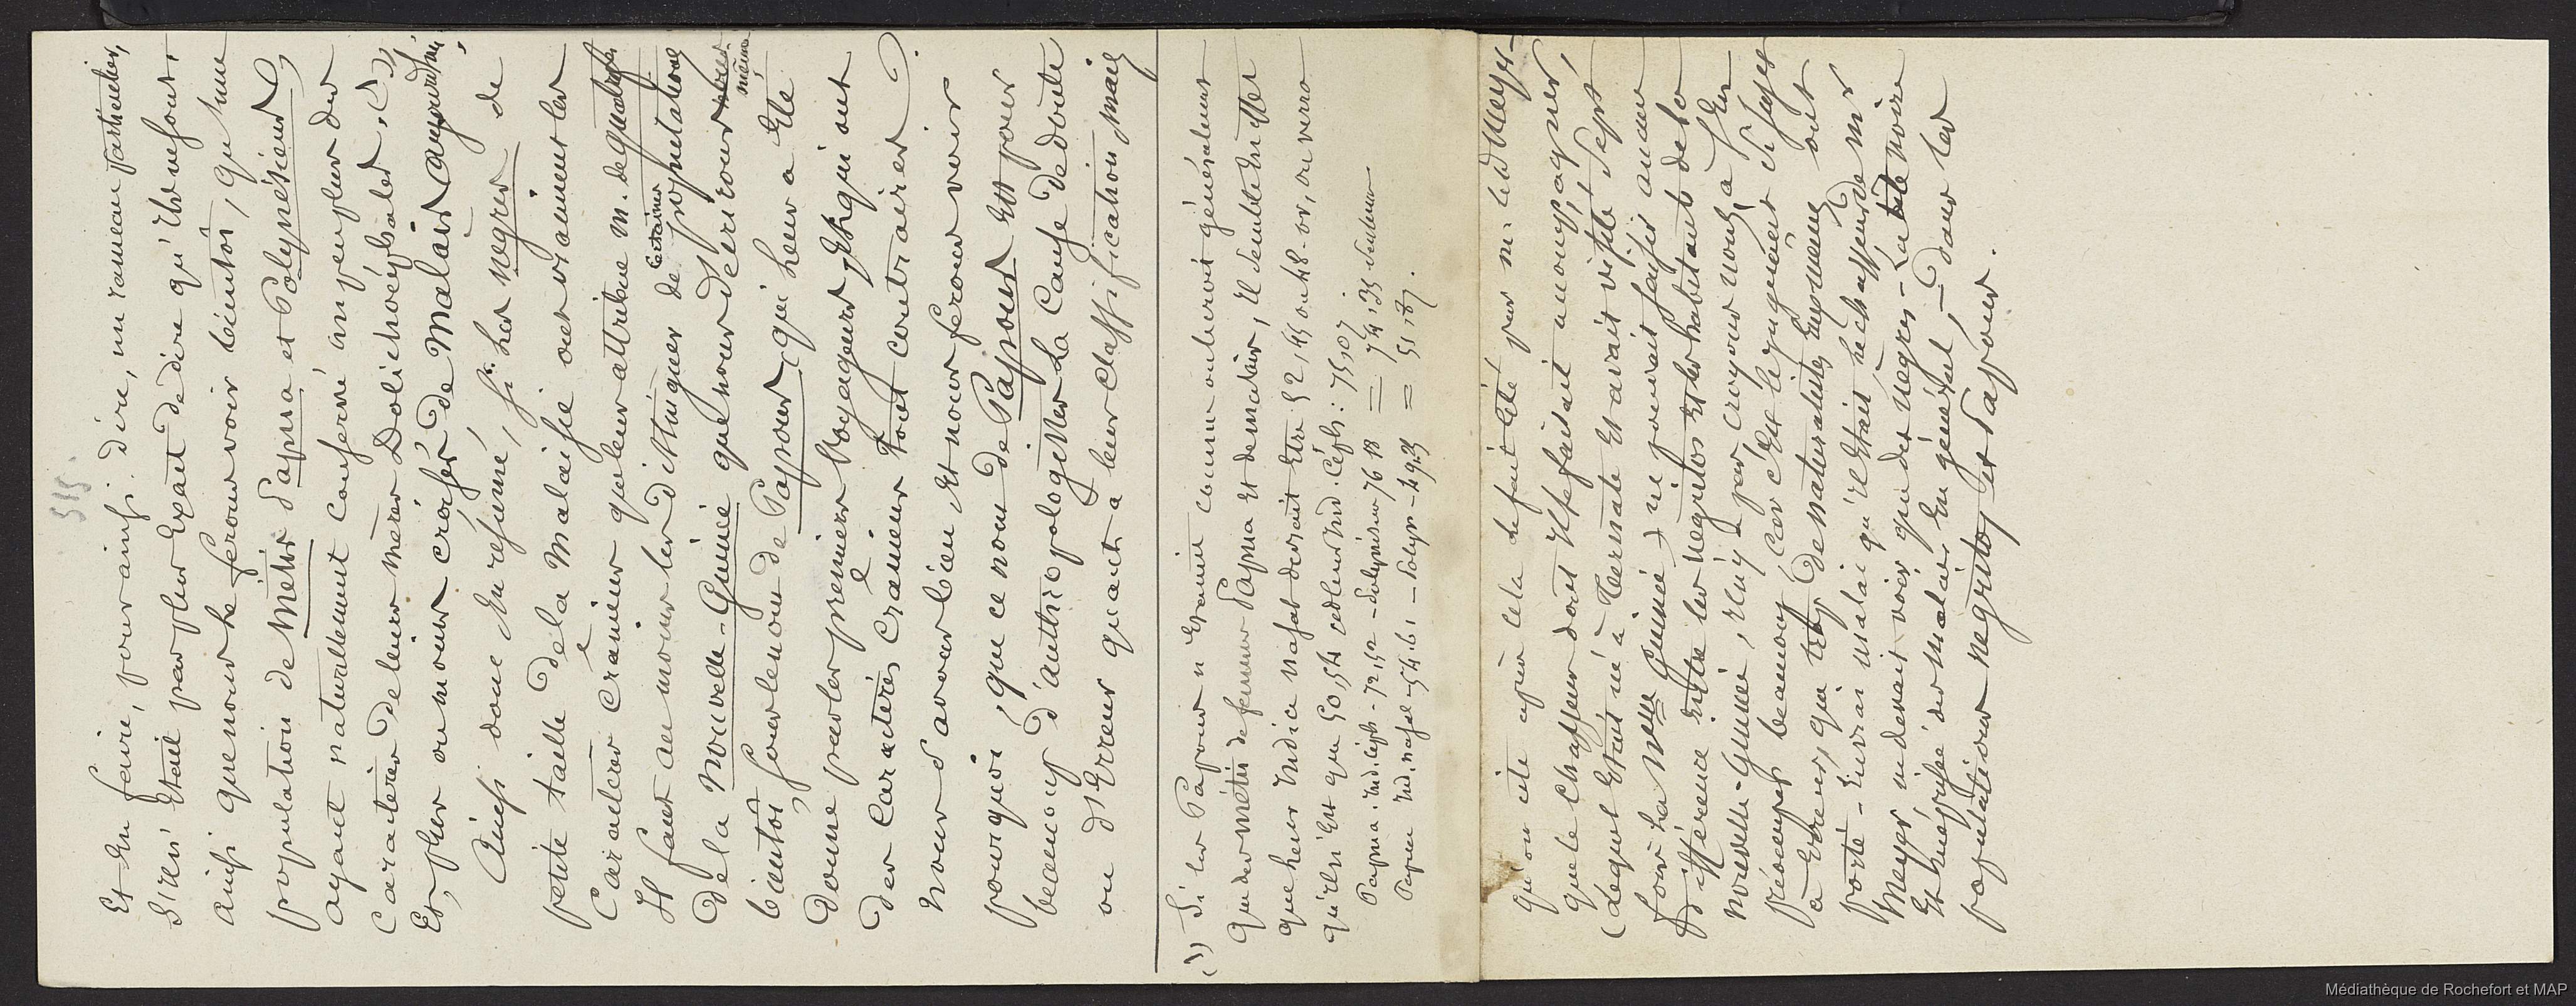 515.
Et en faire, pour ainsi dire, un rameau particulier,
s'il n'était pas plus exact de dire qu'ils ne sont,
ainsi que nous le ferons voir bientôt, qu'une
population de Métis Papua et Polynésiens,
ayant naturellement conservé un peu plus des
caractères de leurs mères Dolichocéphales, (1),
Et, plus ou moins croisés de Malais aujourd'hui,
Ainsi donc en résumé, si les negres de
petite taille de la Malaisie ont vraiment les
caractères crâniens que leur attribue M. de quatrefages
Il faut au moins les distinguer de certaines populations
de la Nouvelle-Guinée que nous décrirons même
bientôt, sous le nom de Papous, qui leur a été
donné par les premiers voyageurs, et qui ont
des caractères crâniens tout contraires.
Nous savons bien, et nous ferons voir
pourquoi, que ce nom de Papous est pour
beaucoup d'anthropologistes la cause de doute
ou d'erreur quant à leur classification, mais
(1) Si les Papous n'étaient comme on le croit généralement
que des métis de femmes Papua et de malais, il semble en effet
que leur indice nasal devrait être 52,45 ou 48 - or, on verra
qu'il n'est que 50,54 et leur ind. céph: 75,07.
Papua. Ind. céph - 72,52 - Polynésien 76 18 = 74,35 seulement
Papua Ind. nasal - 54.61 - Polyn - 49.25 = 51,87.
qu'on cite après cela le fait cité par M. led Meyer
que le chasseur dont il se faisait accompagner,
(lequel était né à Ternate et avait visité sept
fois la Nlle Guinée) ne pouvait saisir aucune
différence entre les negritos et les habitants de la
Nouvelle-Guinée, n'a pas croyons nous, a s'en
préoccuper beaucoup, car c'est le jugement si sujet
à erreurs, que trop de naturalistes eux mêmes ont
porté - En vrai malai qu'il était, le chasseur de Mr
Meyer ne devait voir que des negres - La tête noire
Et méprisée des malais en général, - dans les
populations negritos et Papous.
Médiathèque de Rochefort et MAP